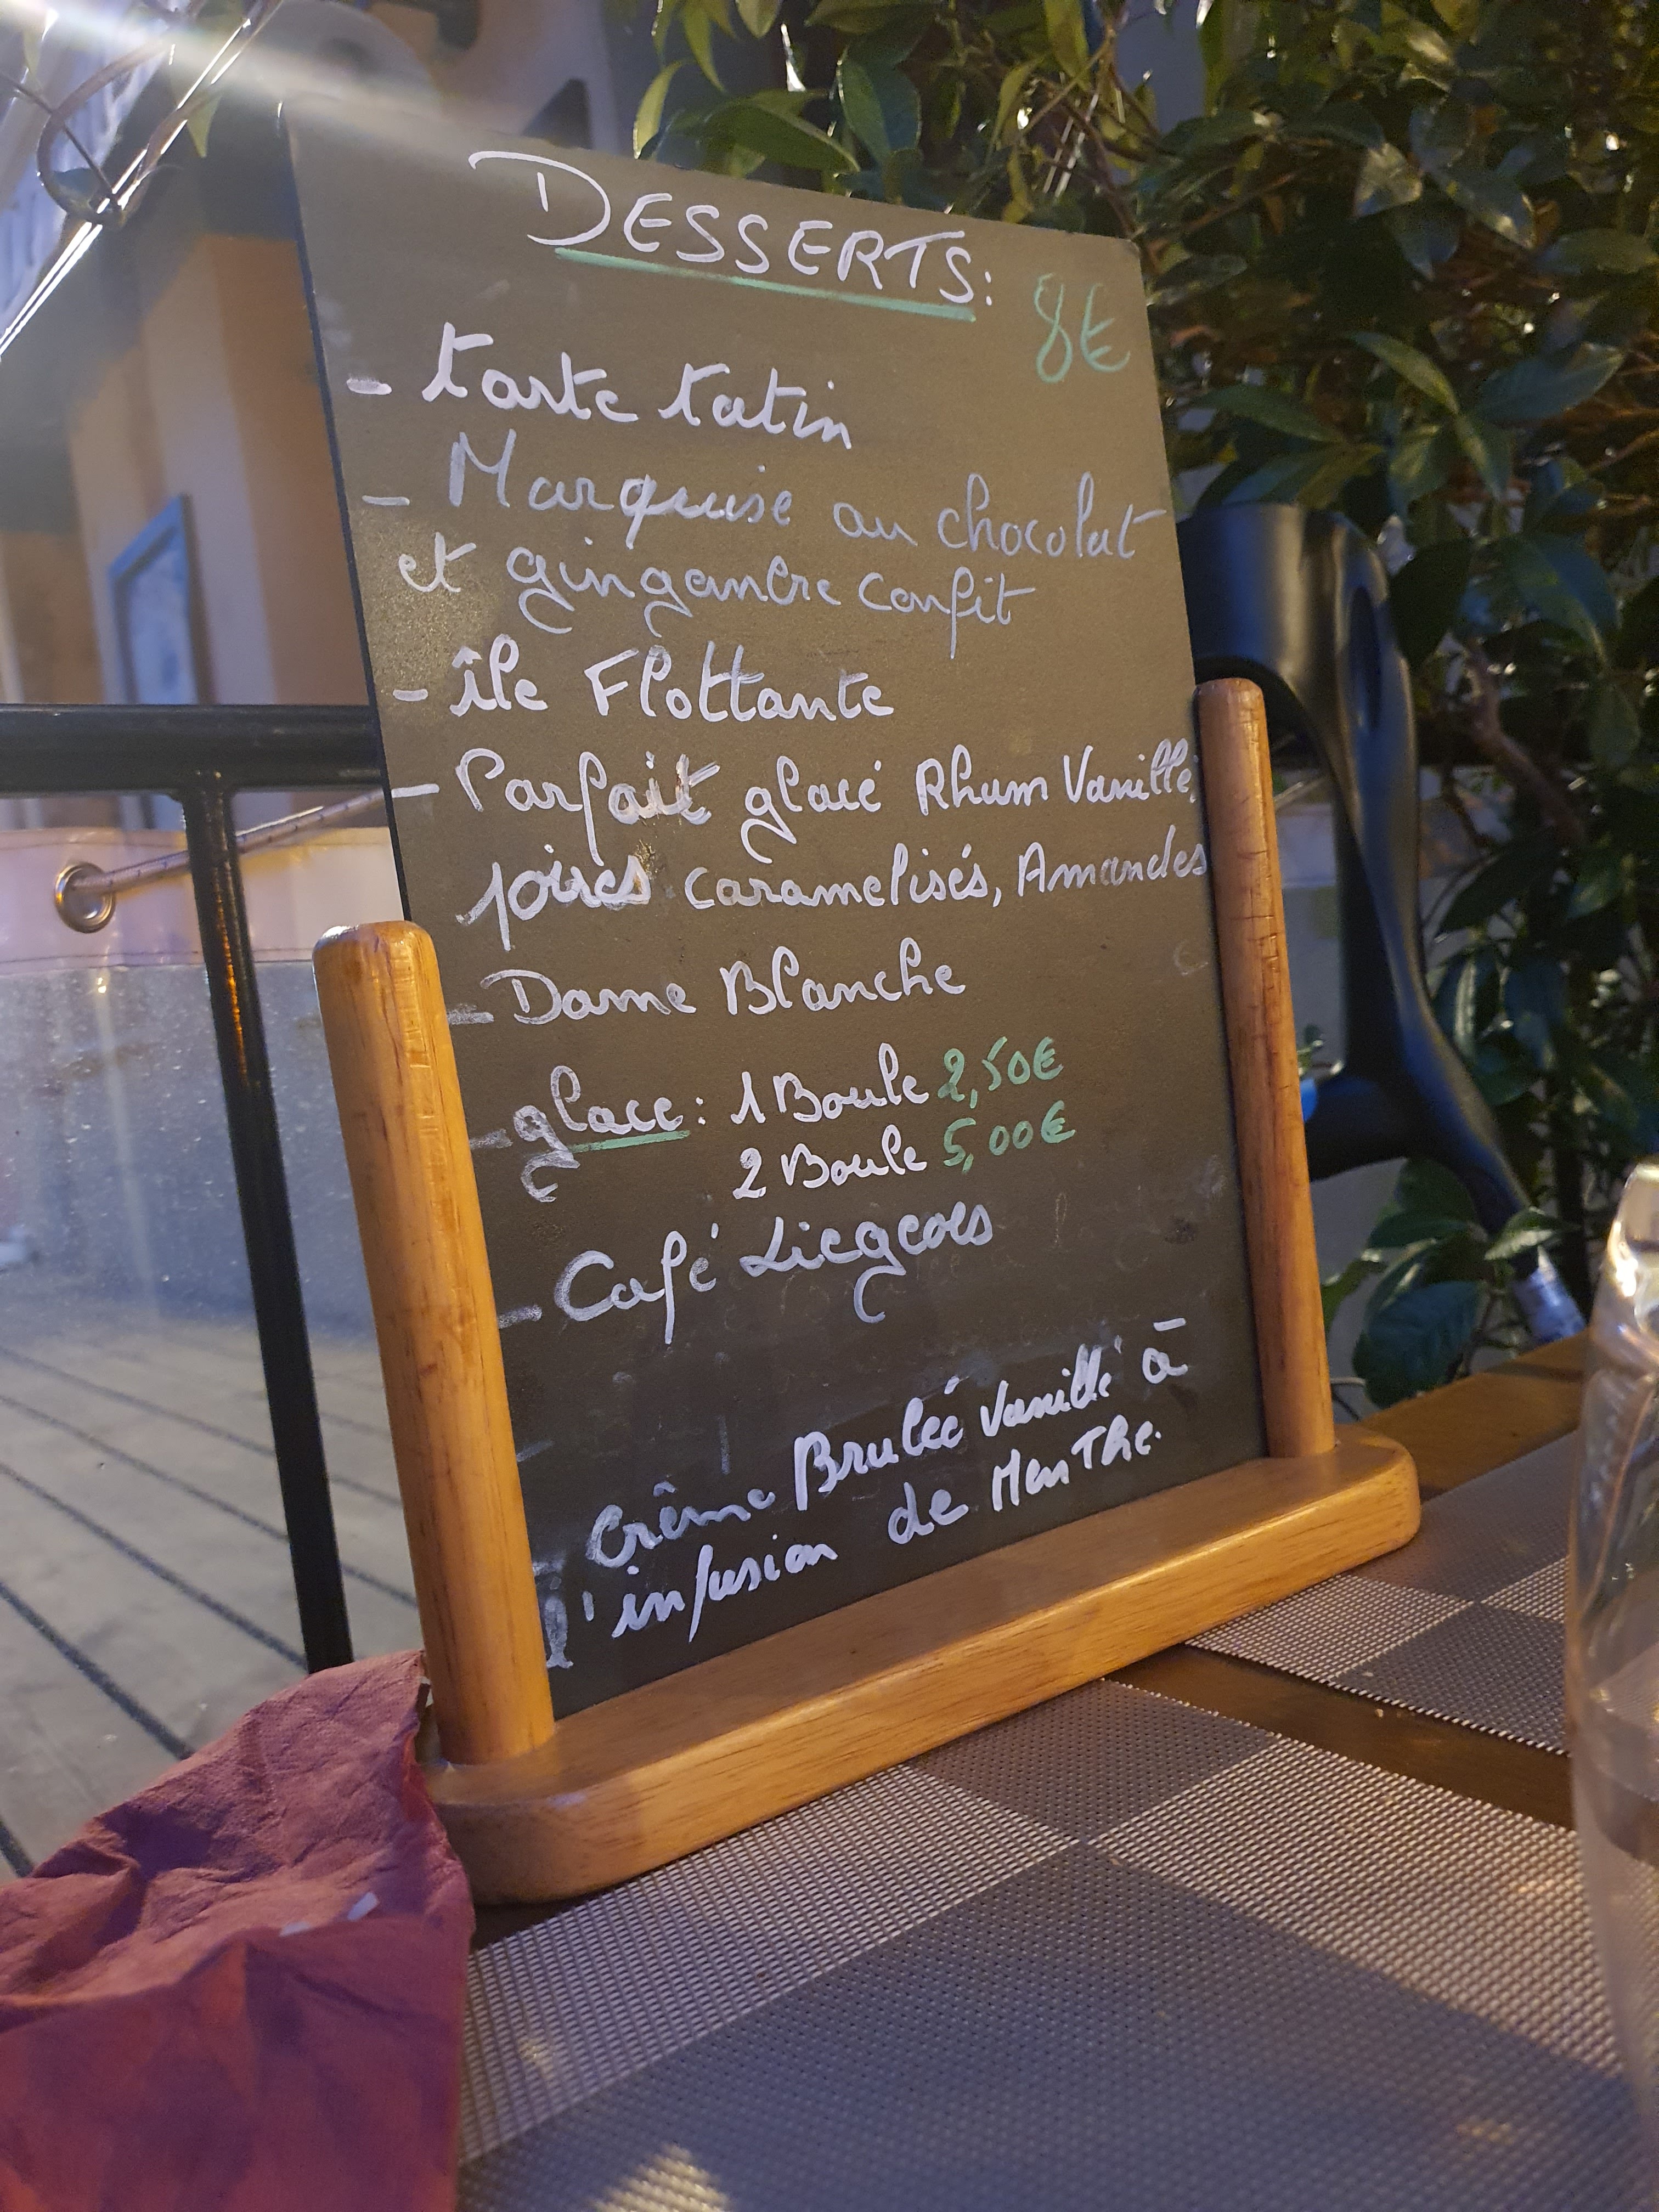 DESSERTS:
8€
- tarte tatin
- Marquise au chocolat
et gingembre confit
- île Flottante
- Parfait glacé Rhum Vanille,
poires caramelisés, Amandes
- Dame Blanche
- glace: 1 Boule 2,50€
2 Boule 5,00€
- Café Liegeois
Crême Brulée Vanille à
l'infusion de Menthe.